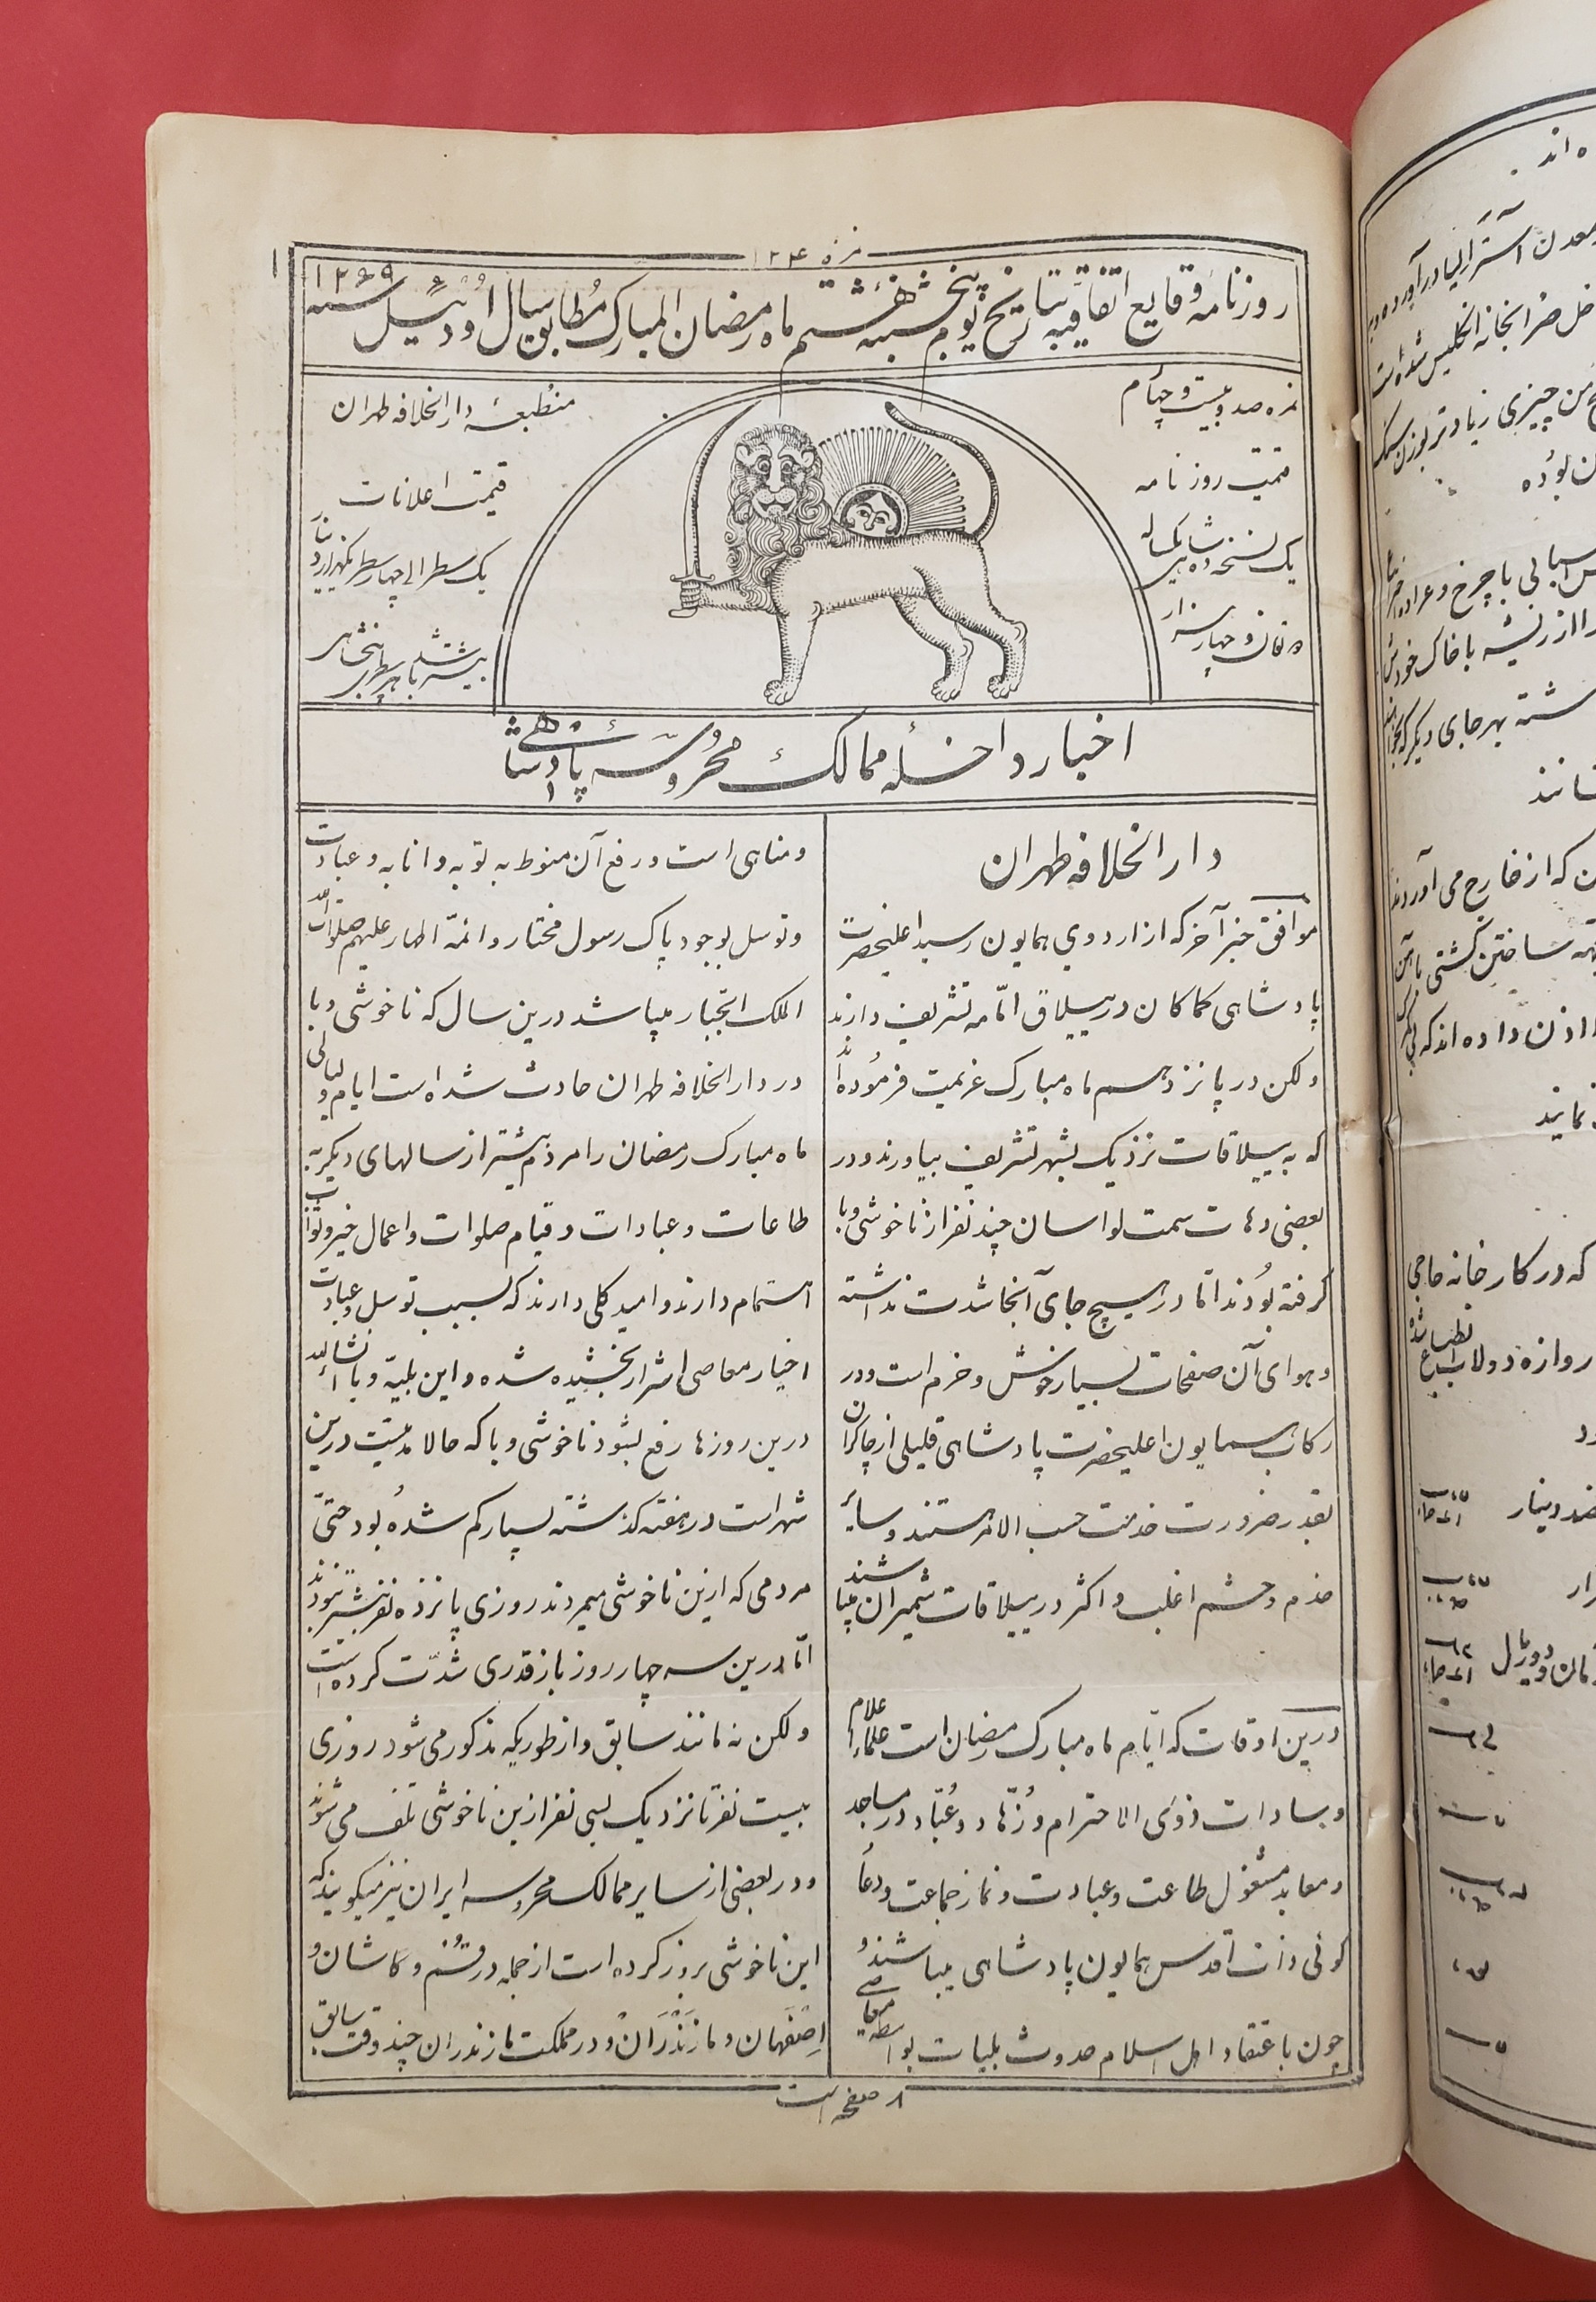 نمره ۱۲۴
روزنامه وقایع اتفاقیه بتاریخ یوم پنجشنبه هشتم ماه رمضان المبارک مطابق سال اودئیل سنه ۱۲۶۹
نمره صد و بیست و چهارم
قیمت روزنامه
یک نسخه ده شاهی یکساله
دو تومان و چهار هزار
منطبعهٔ دارالخلافه طهران
قیمت اعلانات
یک سطر الی چهار سطر یکهزار دینار
بیشتر باشد هر سطری پنجشاهی
اخبار داخلهٔ ممالک محروسهٔ پادشاهی
دارالخلافه طهران
موافق خبر آخر که از اردوی همایون رسید اعلیحضرت
پادشاهی کماکان در ییلاق امامه تشریف دارند
ولکن در پانزدهم ماه مبارک عزیمت فرموده‌اند
که به ییلاقات نزدیک بشهر تشریف بیاورند و در
بعضی دهات سمت لواسان چند نفر از ناخوشی وبا
گرفته بودند اما در هیچ جای آنجا شدت نداشته
و هوای آن صفحات بسیار خوش و خرم است و در
رکاب همایون اعلیحضرت پادشاهی قلیلی از چاکران
بقدر ضرورت خدمت حسب الامر هستند و سایر
خدم و حشم اغلب و اکثر در ییلاقات شمیران میباشند
درین اوقات که ایام ماه مبارک رمضان است علماء اعلام
و سادات ذوی الاحترام و زهاد و عباد در مساجد
و معابد مشغول طاعت و عبادت و نماز جماعت و دعا
گوئی ذات اقدس همایون پادشاهی میباشند و
چون باعتقاد اهل اسلام حدوث بلیات بواسطه معاصی
و مناهی است و رفع آن منوط به توبه و انابه و عبادت
و توسل بوجود پاک رسول مختار و ائمّه اطهار علیهم صلوات الله
الملک الجبار میباشد درین سال که ناخوشی وبا
در دارالخلافه طهران حادث شده است ایام و لیالی
ماه مبارک رمضان را مردم بیشتر از سالهای دیگر به
طاعات و عبادات و قیام صلوات و اعمال خیر و ثواب
اهتمام دارند و امید کلی دارند که بسبب توسل و عبادت
اخیار معاصی اشرار بخشیده شده و این بلیّه وبا انشاءالله
درین روزها رفع بشود ناخوشی وبا که حالا مدتیست درین
شهر است در هفته گذشته بسیار کم شده بود حتیّ
مردمی که ازین ناخوشی میمردند روزی پانزده نفر بیشتر نبودند
امّا درین سه چهار روز باز قدری شدّت کرده است
ولکن نه مانند سابق و از طوریکه مذکور می شود روزی
بیست نفر تا نزدیک بسی نفر ازین ناخوشی تلف می شوند
و در بعضی از سایر ممالک محروسه ایران نیز میگویند که
این ناخوشی بروز کرده است از جمله در قم و کاشان و
اصفهان و مازندران و در مملکت مازندران چند وقت سابق
۸ صفحه است